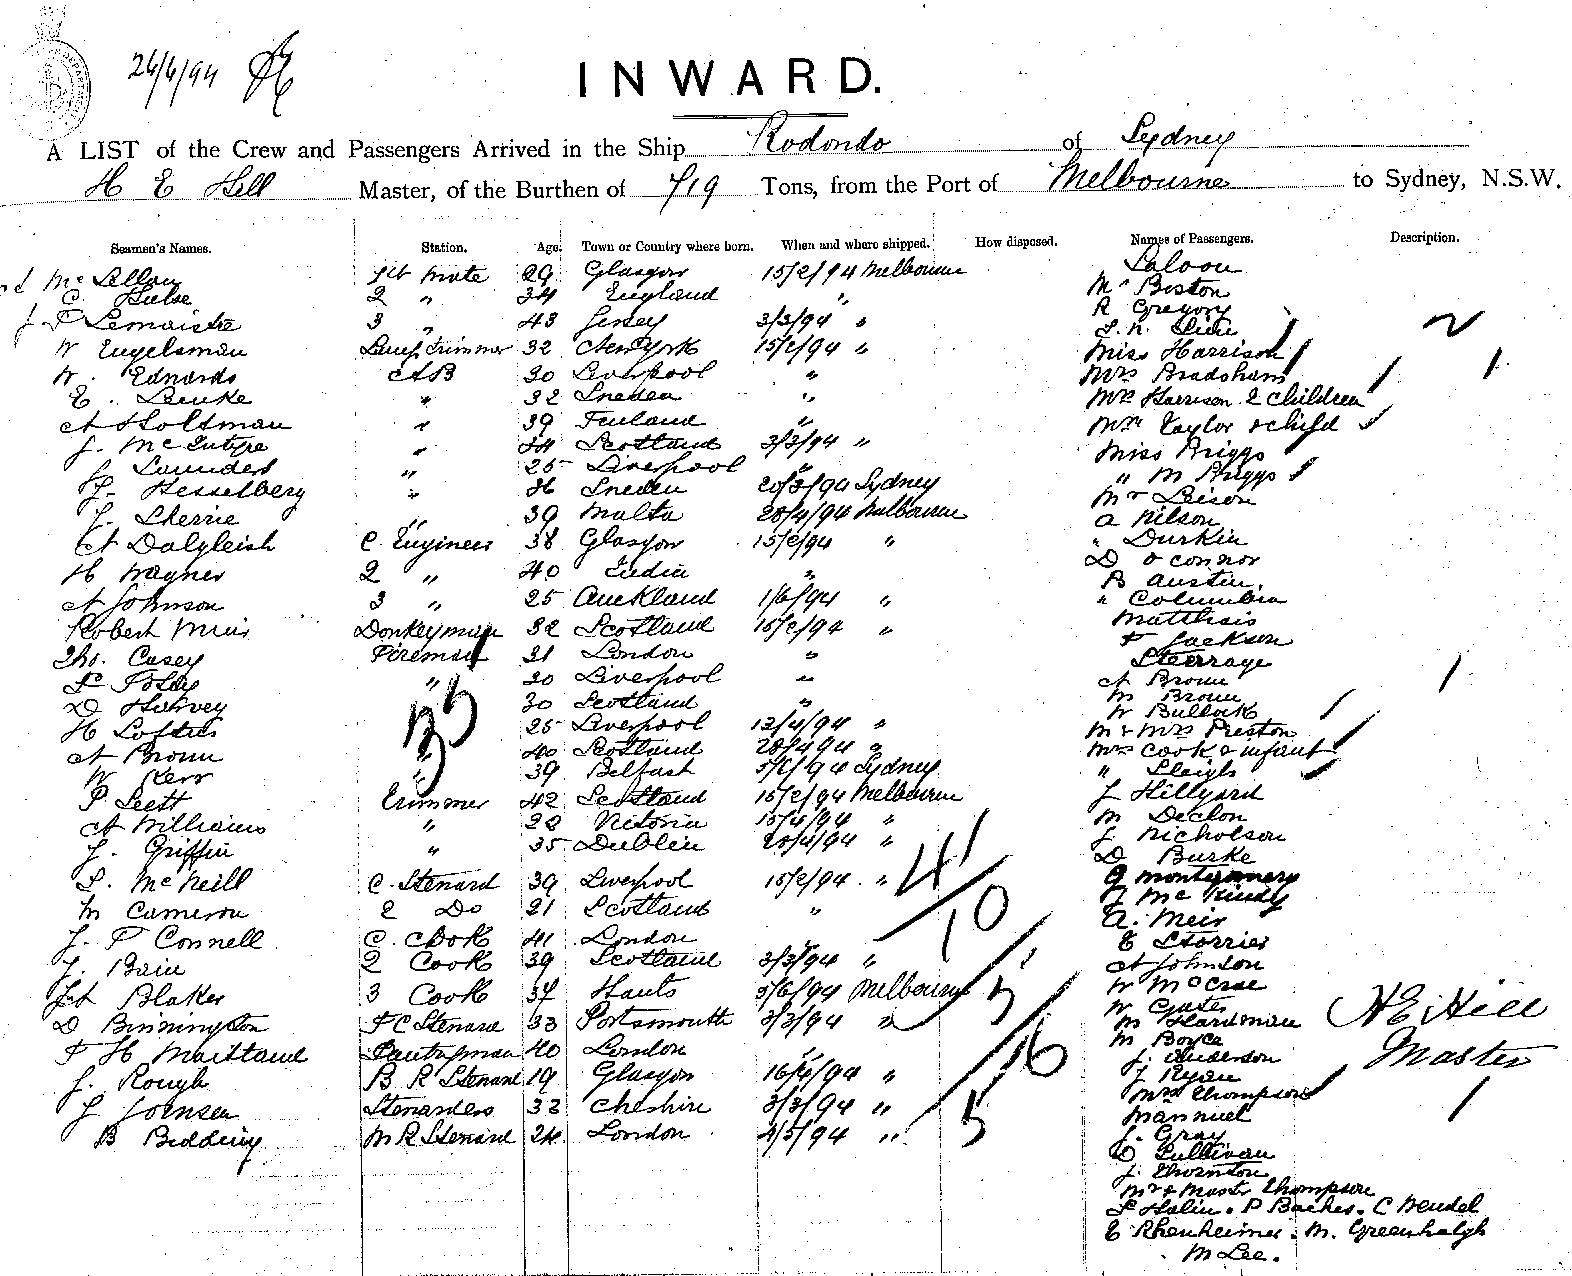 26/6/94
INWARD.
A LIST of the Crew and Passengers Arrived in the Ship Rodondo of Sydney
H E Hill Master, of the Burthen of 719 Tons, from the Port of Melbourne to Sydney, N.S.W.
Seamen's Names. Station. Age. Town or Country where born. When and where shipped. How disposed. Names of Passengers. Description.
McLellan 1st Mate 29 Glasgow 15/2/94 Melbourne Saloon
C. Hulse 2 " 34 England " Mr Boston
J F Lemaistre 3 " 43 Jersey 3/3/94 " R Gregory
W Engelsman Lamp trimmer 32 New York 15/2/94 " Miss Harrison
W. Edwards AB 30 Liverpool " Mrs Bradshaw
E. " 32 Sweden " Mrs Harrison 2 Children
A Holtman " 39 Finland " Mrs Taylor & child
J. McIntyre " Scotland 3/3/94 " Miss Briggs
Saunders " 25 Liverpool " M Briggs
Hesselberg " Sweden Sydney Mr
J. Cherrie " 39 Malta 28/4/94 Melbourne A Nilson
A Dalgleish C. Engineer 38 Glasgow 15/2/94 " " Durkin
H Wagner 2 " 40 India " D O Connor
A Johnson 3 " 25 Auckland 1/6/94 " B Austin
Robert Muir Donkeyman 32 Scotland 15/2/94 " " Columbia
Tho. Casey Fireman 31 London " Matthais
F Foley " 30 Liverpool " F Jackson
D Harvey 30 Scotland " Steerage
H Loftus 25 Liverpool 12/4/94 " A Brown
A Brown 40 Scotland 28/4/94 " M Brown
W Kerr " 39 Belfast Sydney W Bullock
P Scott Trimmer 42 Scotland 15/2/94 Melbourne Mr & Mrs Preston
A Williams " 22 Victoria " Mrs Cook & infant
J. Griffin " 35 Dublin 28/4/94 " " Sleigh
S. McNeill C. Steward 39 Liverpool 15/2/94 " J Hillyard
M Cameron 2 Do 21 Scotland " M Declon
J. F Connell C. Cook 41 London " J Nicholson
J. Bain 2 Cook 39 Scotland 3/3/94 " D Burke
Blaker 3 Cook 37 Hants 5/6/94 Melbourne G Montgomery
D Binnington F C Steward 33 Portsmouth 3/3/94 " McKindy
F H Maitland Pantryman 40 London " A. Meir
J. Rough B R Steward 19 Glasgow 16/6/94 " E Storries
J Joensen Stewardess 33 Cheshire 3/3/94 " A Johnson
B Bidding M R Steward 24 London 4/5/94 " W McCrae
W Gates
M Hardman
M Boyce
J. Anderson
J Ryan
Mrs Thompson
Mannuel
J. Gray
D Sullivan
J. Thornton
Mr & Master Thompson
S Halin. P Baches. C Mendel
E Rhenheimer. M. Greenhalgh
M Lee.
H E Hill
Master